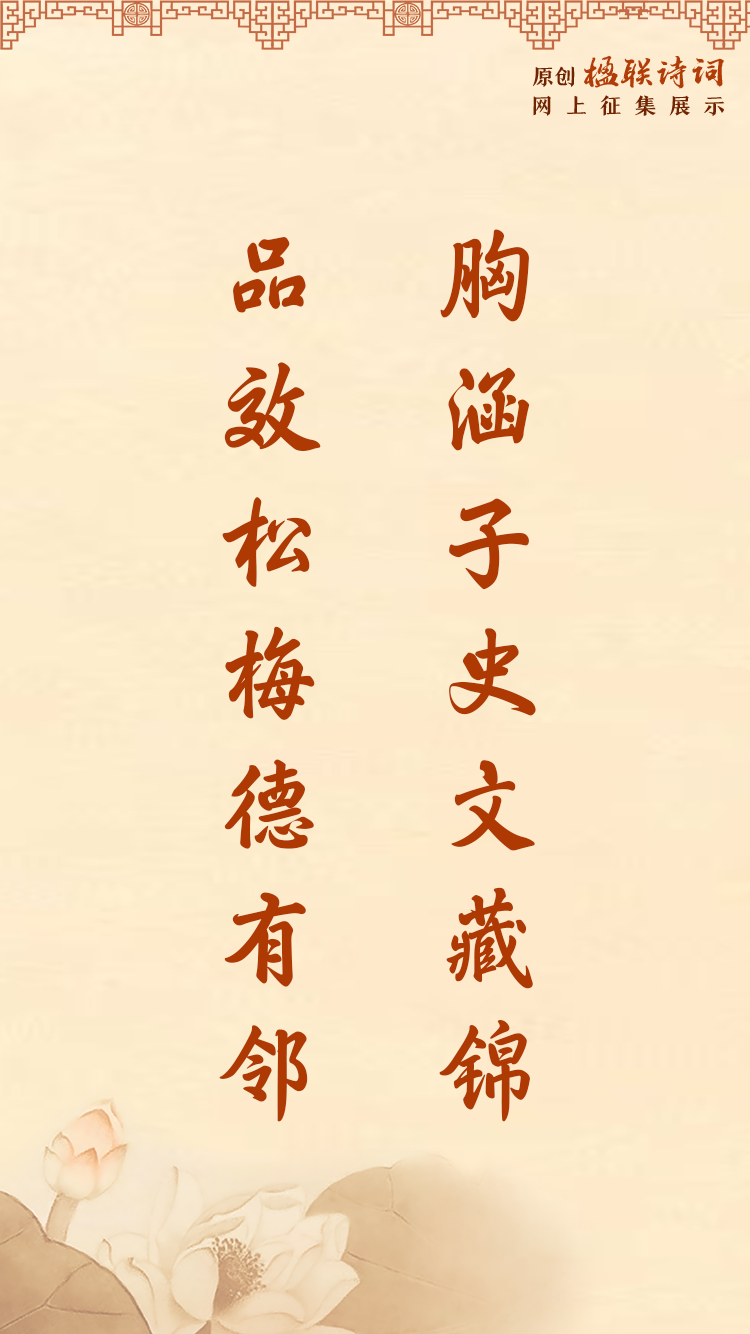 原创 楹联诗词
网上征集展示
胸涵子史文藏锦
品效松梅德有邻